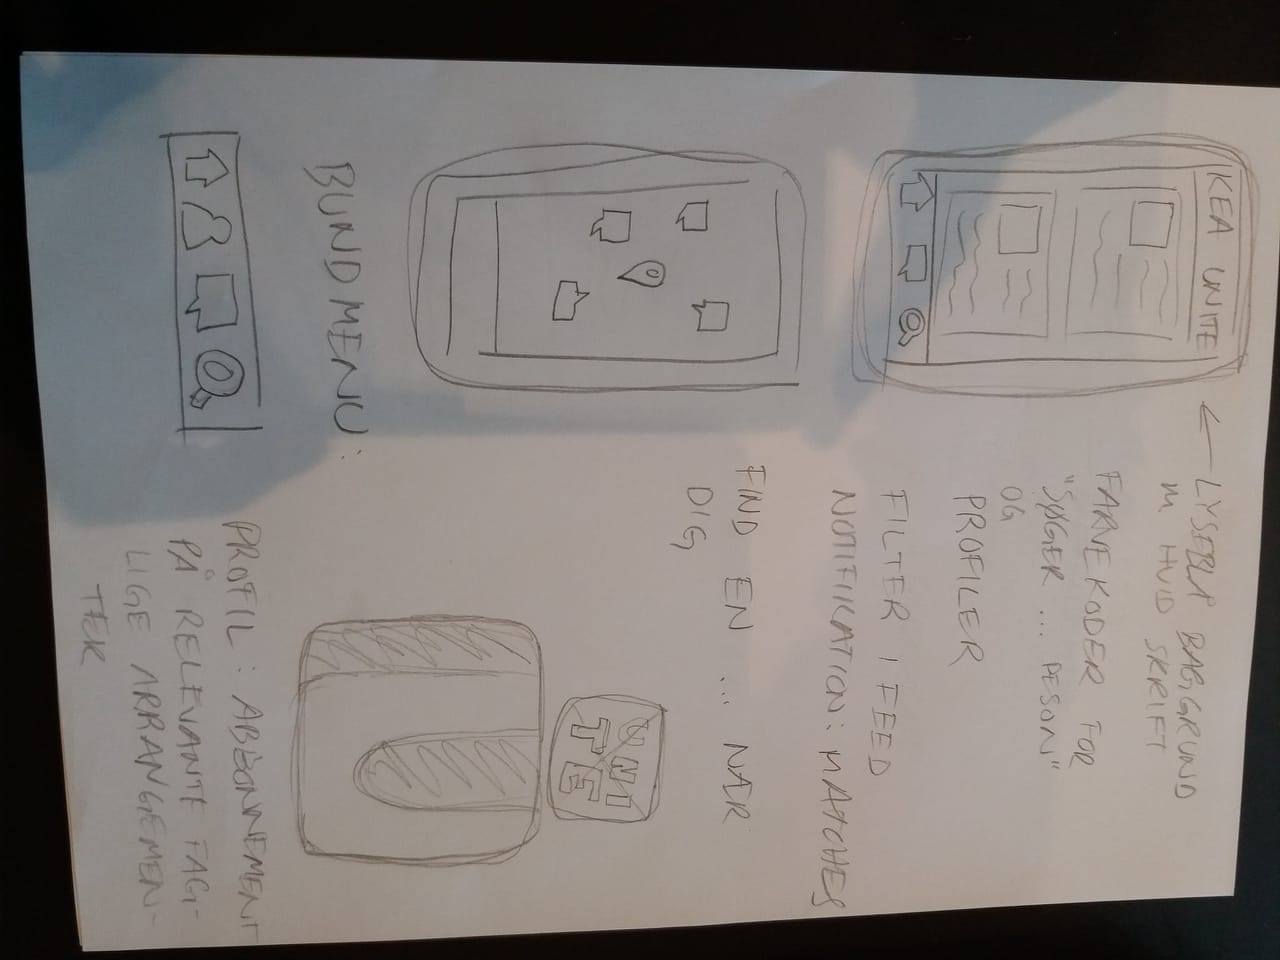 KEA UNITE
← LYSEBLÅ BAGGRUND
M HVID SKRIFT
FARVEKODER FOR
"SØGER ... PESON"
OG
PROFILER
FILTER I FEED
NOTIFIKATION: MATCHES
FIND EN ... NÆR
DIG
UNI
TE
BUNDMENU:
PROFIL: ABBONNEMENT
PÅ RELEVANTE FAG-
LIGE ARRANGEMEN-
TER